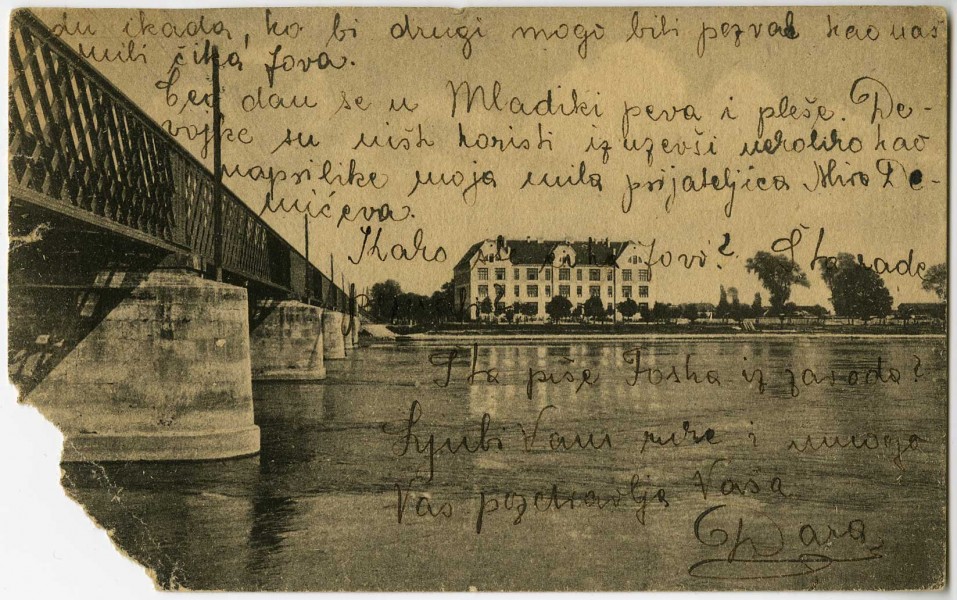 du ikada, ko bi drugi mogo biti pozvat kao naš
mili čika Jova.
Ceo dan se u Mladiki peva i pleše. De-
vojke su ništ koristi izuzevši nekoliko kao
naprilike moja mila prijateljica Mira De-
mićeva.
Kako Jovi? Šta rade
Šta piše Joska iz zavoda?
Ljubi Vam ruke i mnogo
Vas pozdravlja Vaša
Dara